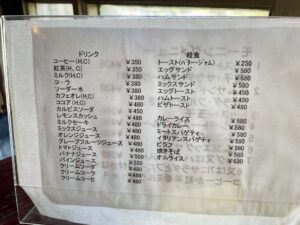 ドリンク
コーヒー(H,C) ¥350
紅茶(H,C) ¥350
ミルク(H,C) ¥380
コーラ ¥380
ソーダー水 ¥380
カフェオレ(H,C) ¥380
ココア(H,C) ¥480
カルピスソーダ ¥450
レモンスカッシュ ¥480
ミルクセーキ ¥480
ミックスジュース ¥480
オレンジジュース ¥480
グレープフルーツジュース ¥480
トマトジュース ¥480
バナナジュース ¥550
パインジュース ¥550
クリームソーダ ¥480
クリームコーラ ¥480
クリームコーヒ ¥480
軽食
トースト(バター・ジャム) ¥250
エッグサンド ¥580
ハムサンド ¥580
ミックスサンド ¥580
エッグトースト ¥450
ハムトースト ¥450
ピザトースト ¥580
カレーライス ¥580
ドライカレー ¥580
ミートスパゲティ ¥580
イタリアンスパゲティ ¥580
ピラフ ¥580
焼きそば ¥580
オムライス ¥630